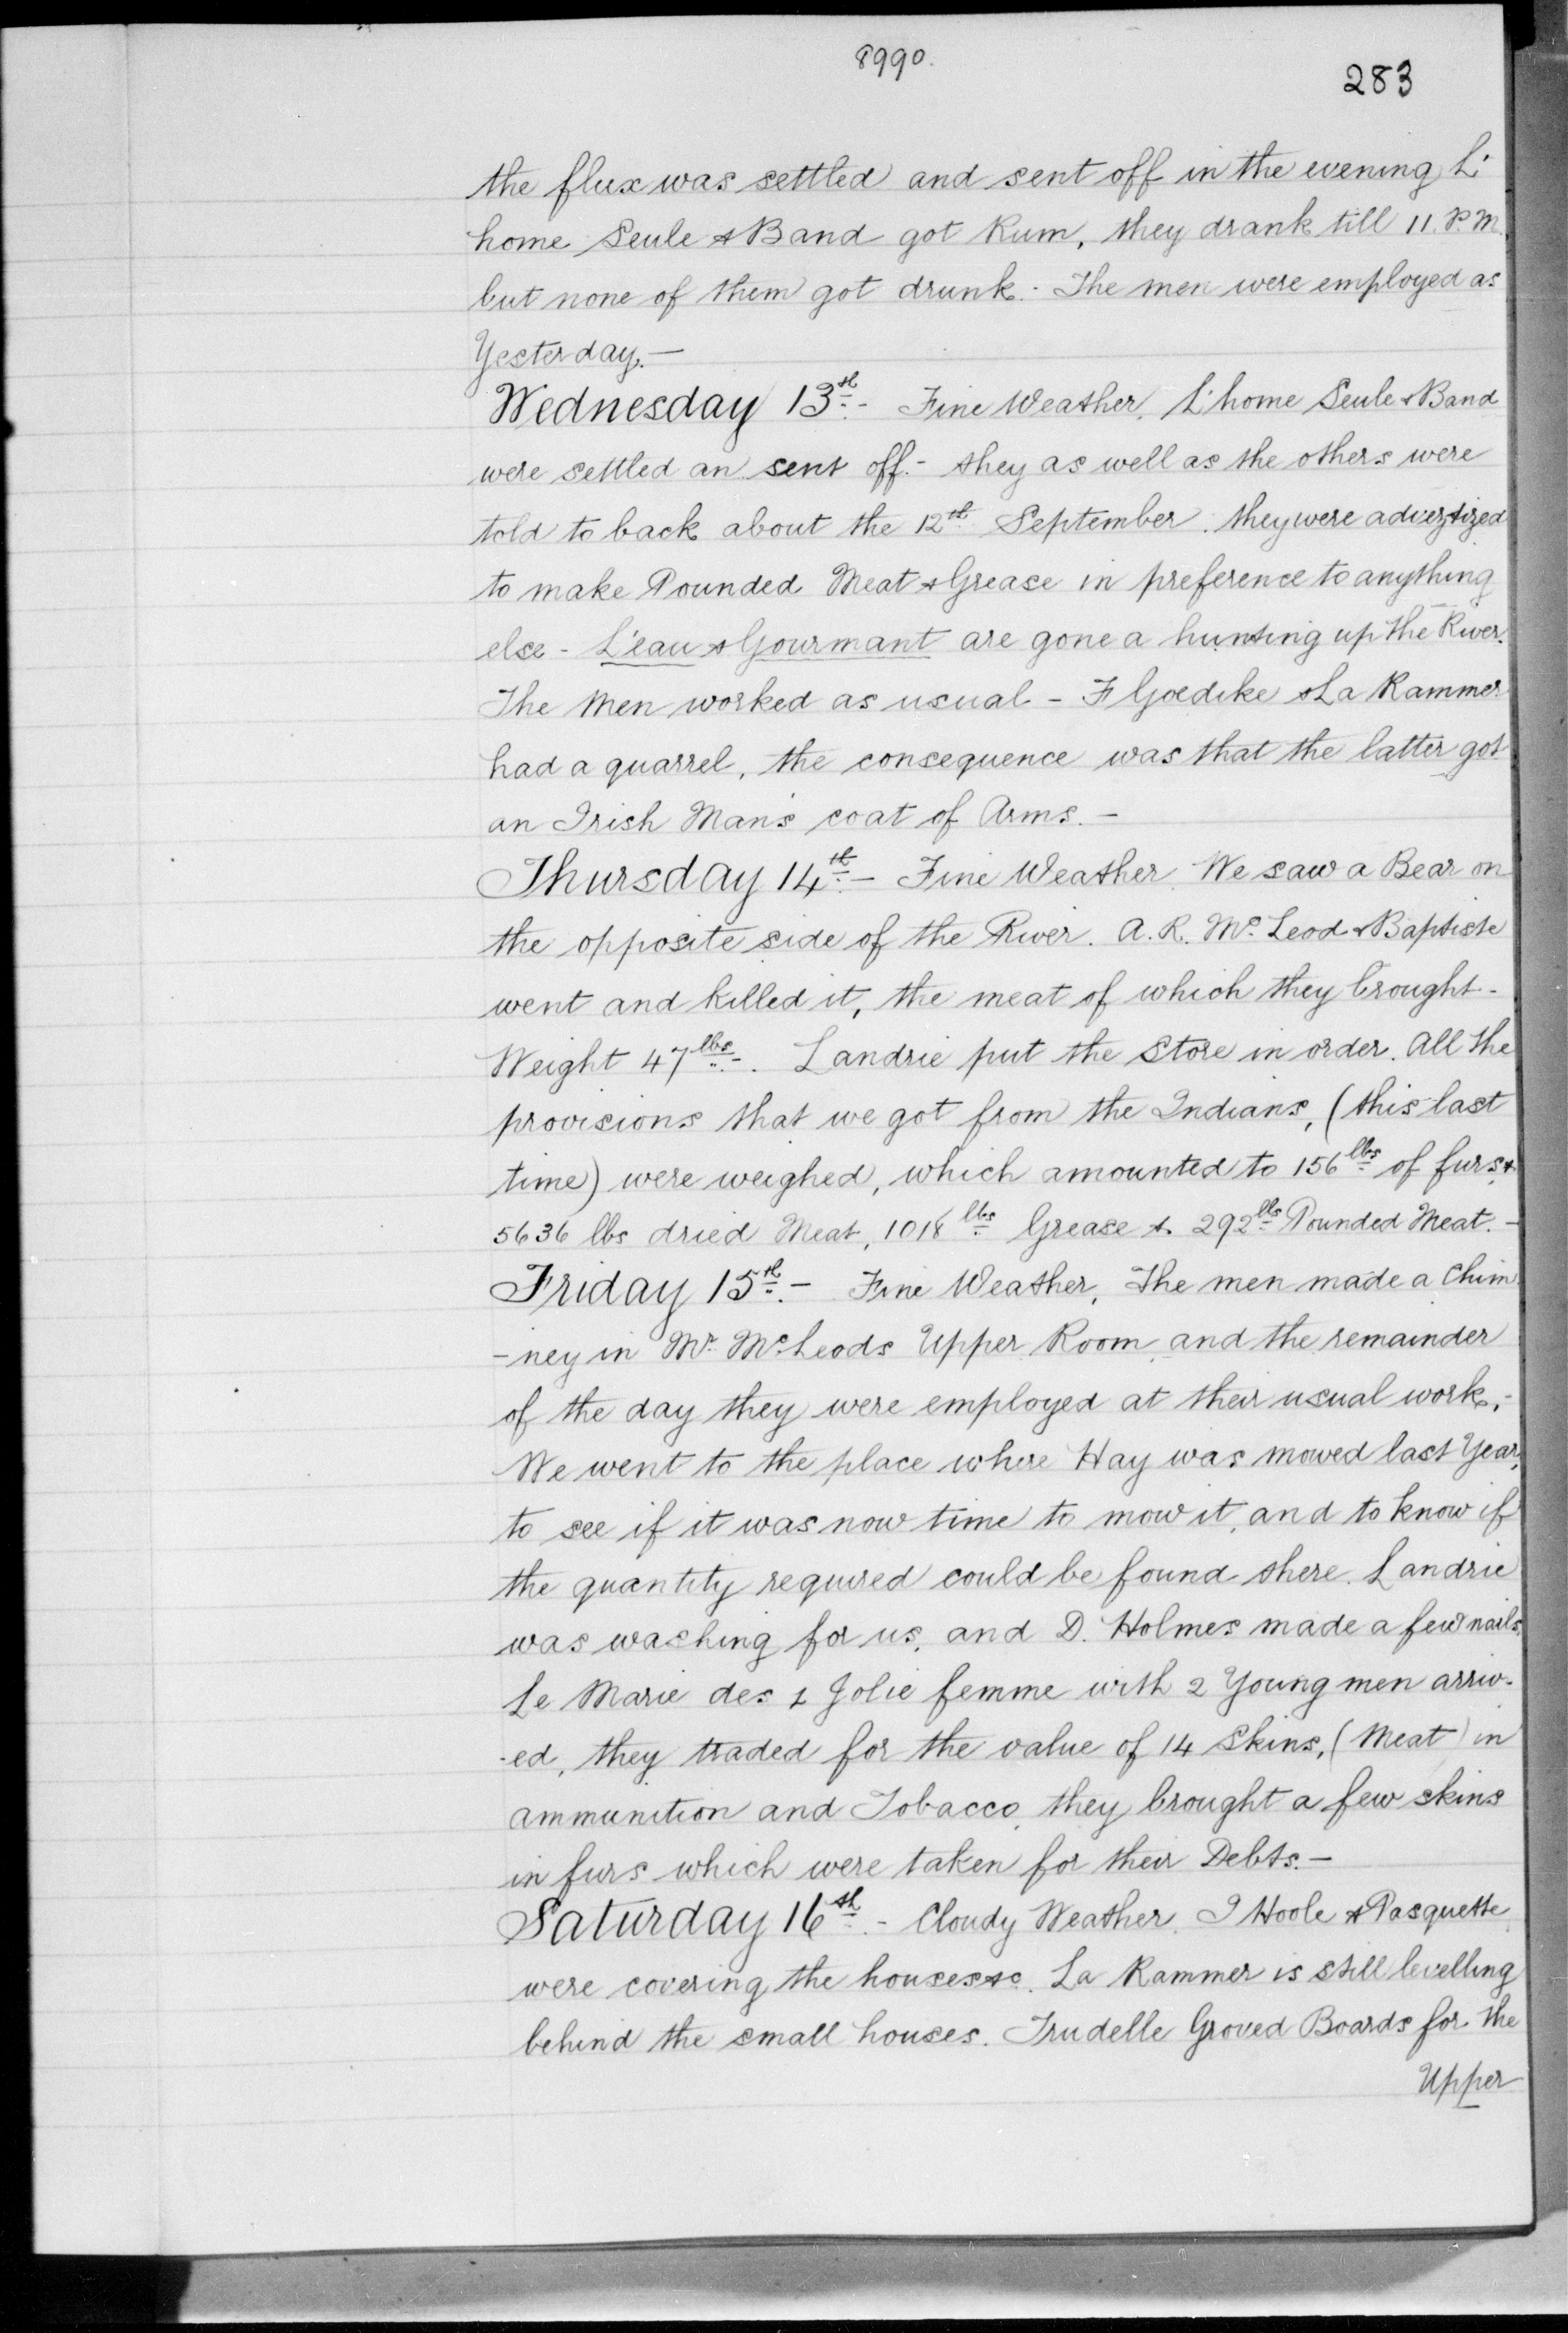 8990.
283
the flux was settled and sent off in the evening L'
home Seule & Band got Rum, they drank till 11. P.M.
but none of them got drunk. - The men were employed as
Yesterday. —
Wednesday 13th. - Fine Weather. L'home Seule & Band
were settled an sent off. - they as well as the others were
told to back about the 12th September. they were advertized
to make Pounded Meat & Grease in preference to anything
else - L'eau & Gourmant are gone a hunting up the River.
The Men worked as usual - F Goedike & La Rammer
had a quarrel, the consequence was that the latter got
an Irish Man's coat of Arms. —
Thursday 14th. - Fine Weather. We saw a Bear on
the opposite side of the River. A. R. Mc Leod & Baptiste
went and killed it, the meat of which they brought -
Weight 47 lbs. -. Landrie put the Store in order. All the
provisions that we got from the Indians, (this last
time) were weighed, which amounted to 156 lbs of furs &
5636 lbs dried Meat, 1018 lbs Grease & 292 lbs Pounded Meat. -
Friday 15th. - Fine Weather, The men made a Chim
-ney in Mr. McLeods Upper Room and the remainder
of the day they were employed at their usual work, -
We went to the place where Hay was mowed last Year,
to see if it was now time to mow it, and to know if
the quantity required could be found there. Landrie
was washing for us, and D. Holmes made a few nails.
Le Marie des 1 Jolie femme with 2 Young men arriv-
-ed, they traded for the value of 14 Skins, (Meat) in
ammunition and Tobacco, they brought a few skins
in furs which were taken for their Debts. —
Saturday 16th. - Cloudy Weather. I Hoole & Pasquette
were covering the houses &c. La Rammer is still levelling
behind the small houses. Trudelle Groved Boards for the
Upper